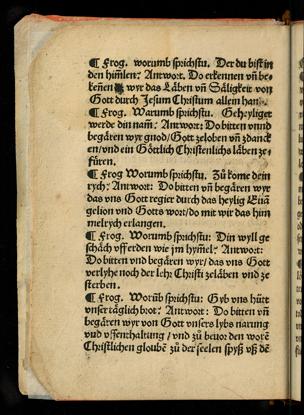 ¶ Frog. worumb sprichstu. Der du bist in
den him̃len: Antwort. Do erkennen vñ be-
keñen wyr das Läben vñ Säligkeit von
Gott durch Jesum Christum allein han.
¶ Frog. Warumb sprichstu. Geheyliget
werde din nam̃. Antwort: Do bitten vnnd
begären wyr gnod/Gott zeloben vñ zdanck
en/vnd ein Göttlich Christenlichs läben ze-
füren.
¶ Frog Worumb sprichstu. Zů kome dein
rych: Antwort: Do bitten vñ begären wyr
das vns Gott regier durch das heylig Euã
gelion vnd Gotts wort/do mit wir das him
melrych erlangen.
¶ Frog. Worumb sprichstu: Din wyll ge
schäch vff erden wie jm hym̃el: Antwort:
Do bitten vnd begären wyr/das vns Gott
verlyhe noch der lehr Christi zeläben vnd ze
sterben.
¶ Frog. Worũb sprichstu: Gyb vns hürt
vnser täglich brot: Antwor: Do bitten vñ
begären wyr von Gott vnsers lybs narung
vnd vffenthaltung / vnd zů beuor den worẽ
Christlichen gloubẽ zů der seelen spyß vß dẽ